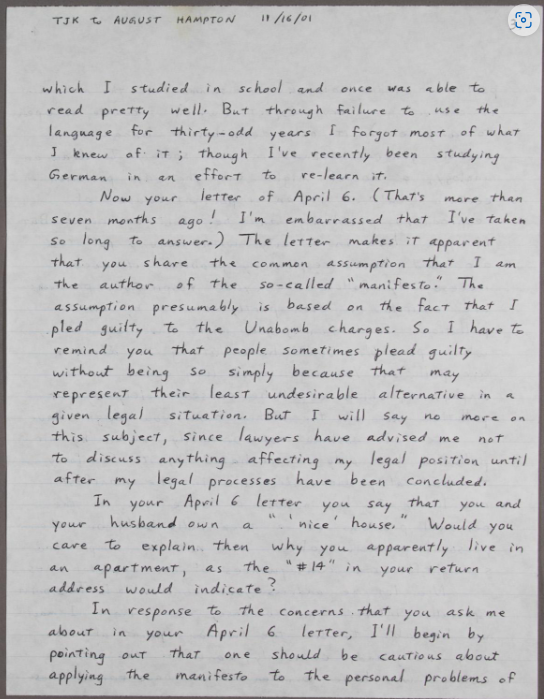 TJK to AUGUST HAMPTON 11/16/01
which I studied in school and once was able to
read pretty well. But through failure to use the
language for thirty-odd years I forgot most of what
I knew of it; though I've recently been studying
German in an effort to re-learn it.
Now your letter of April 6. (That's more than
seven months ago! I'm embarrassed that I've taken
so long to answer.) The letter makes it apparent
that you share the common assumption that I am
the author of the so-called "manifesto." The
assumption presumably is based on the fact that I
pled guilty to the Unabomb charges. So I have to
remind you that people sometimes plead guilty
without being so simply because that may
represent their least undesirable alternative in a
given legal situation. But I will say no more on
this subject, since lawyers have advised me not
to discuss anything affecting my legal position until
after my legal processes have been concluded.
In your April 6 letter you say that you and
your husband own a "'nice' house." Would you
care to explain then why you apparently live in
an apartment, as the "#14" in your return
address would indicate?
In response to the concerns that you ask me
about in your April 6 letter, I'll begin by
pointing out that one should be cautious about
applying the manifesto to the personal problems of